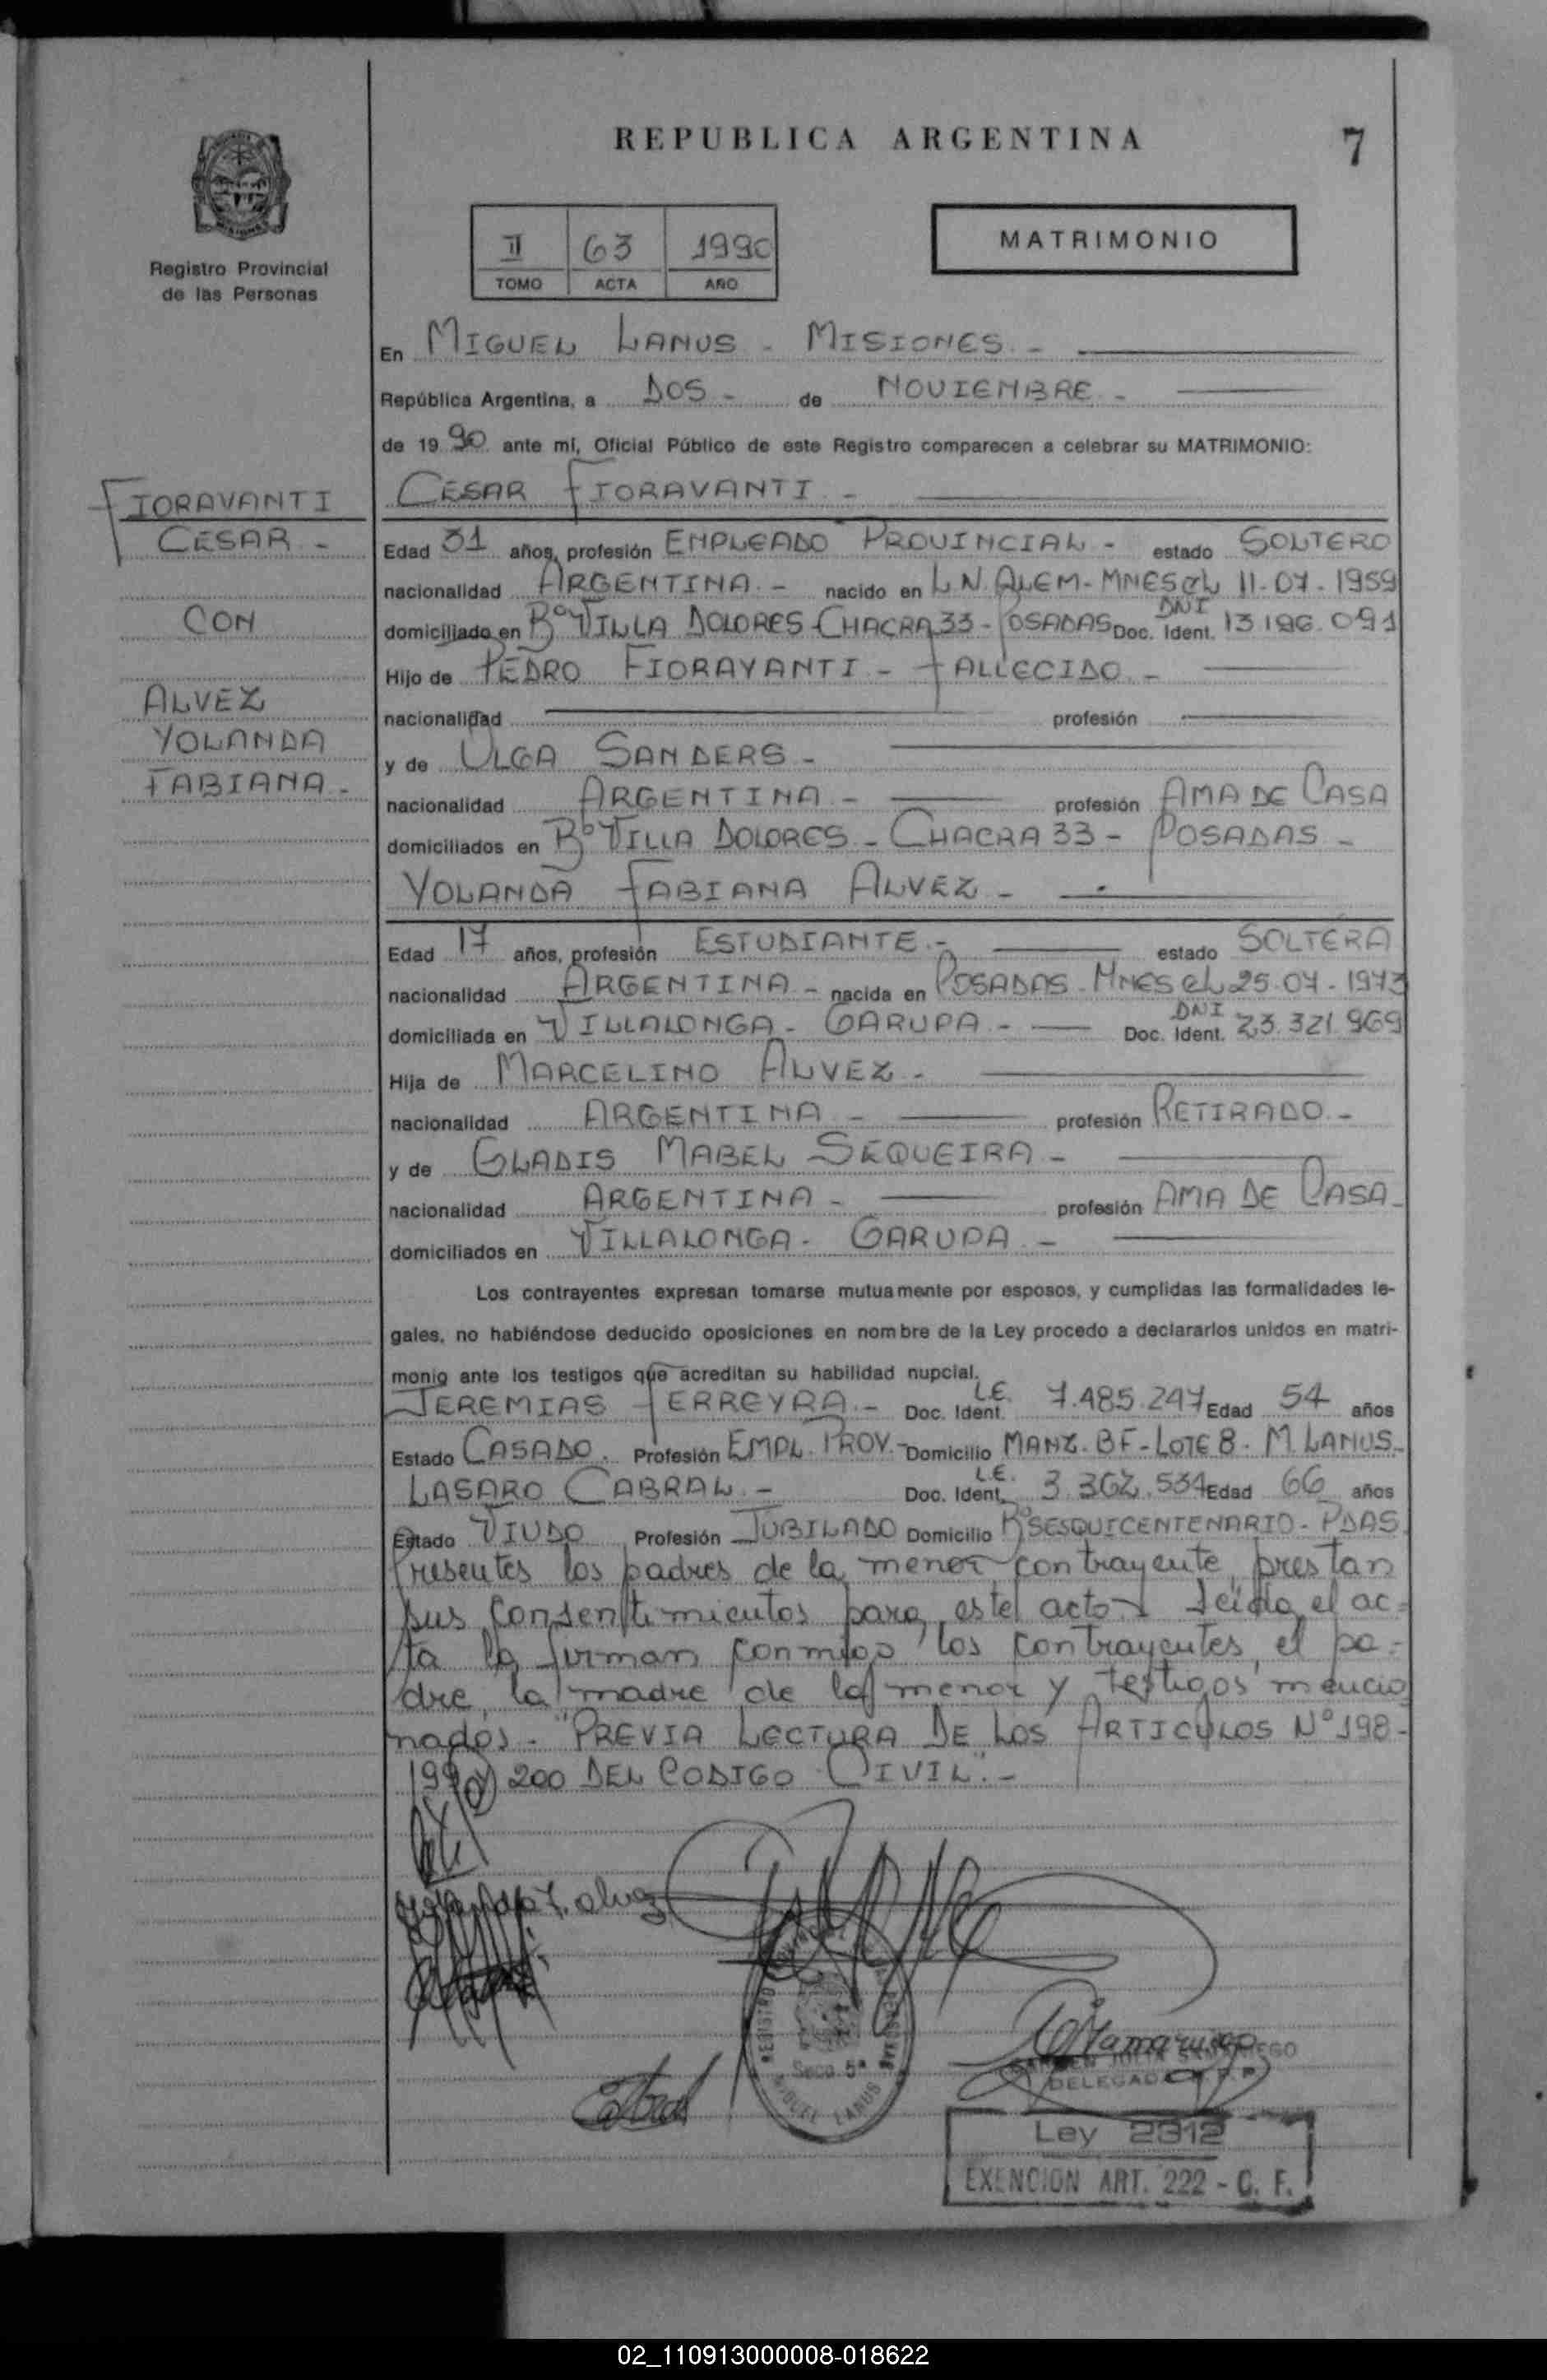 REPUBLICA ARGENTINA
7
Registro Provincial
de las Personas
II 63 1990
TOMO ACTA AÑO
MATRIMONIO
En MIGUEL LANUS - MISIONES. -
República Argentina, a DOS - de NOVIEMBRE -
de 19 90 ante mí, Oficial Público de este Registro comparecen a celebrar su MATRIMONIO:
FIORAVANTI
CESAR -
CON
ALVEZ
YOLANDA
FABIANA -
CESAR FIORAVANTI -
Edad 31 años, profesión EMPLEADO PROVINCIAL - estado SOLTERO
nacionalidad ARGENTINA. - nacido en L.N. ALEM - MNES el 11-07-1959
domiciliado en Bº VILLA DOLORES - CHACRA 33 - POSADAS Doc. Ident. DNI 13 186.091
Hijo de PEDRO FIORAVANTI - FALLECIDO -
nacionalidad profesión
y de OLGA SANDERS -
nacionalidad ARGENTINA - profesión AMA DE CASA
domiciliados en Bº VILLA DOLORES - CHACRA 33 - POSADAS -
YOLANDA FABIANA ALVEZ -
Edad 17 años, profesión ESTUDIANTE. - estado SOLTERA
nacionalidad ARGENTINA - nacida en POSADAS - MNES el 25.07-1973
domiciliada en VILLALONGA - GARUPA - Doc. Ident. DNI 23.321.969
Hija de MARCELINO ALVEZ -
nacionalidad ARGENTINA - profesión RETIRADO -
y de GLADIS MABEL SEQUEIRA -
nacionalidad ARGENTINA - profesión AMA DE CASA -
domiciliados en VILLALONGA - GARUPA -
Los contrayentes expresan tomarse mutuamente por esposos, y cumplidas las formalidades le-
gales, no habiéndose deducido oposiciones en nombre de la Ley procedo a declararlos unidos en matri-
monio ante los testigos que acreditan su habilidad nupcial.
JEREMIAS FERREYRA. - Doc. Ident. L.E. 7.485.247 Edad 54 años
Estado CASADO. Profesión EMPL. PROV. - Domicilio MANZ. BF - LOTE 8 - M. LANUS -
LASARO CABRAL. - Doc. Ident. L.E. 3.362.534 Edad 66 años
Estado VIUDO Profesión JUBILADO Domicilio Bº SESQUICENTENARIO - PDAS.
Presentes los padres de la menor contrayente, prestan
sus consentimientos para este acto. Leída el ac-
ta la firman conmigo los contrayentes, el pa-
dre, la madre de la menor y testigos mencio
nados - "PREVIA LECTURA DE LOS ARTICULOS Nº 198 -
199 y 200 DEL CODIGO CIVIL." -
DELEGADA
REGISTRO
Secc 5ª
MIGUEL LANUS
Ley 2312
EXENCION ART. 222 - C. F.
02_110913000008-018622